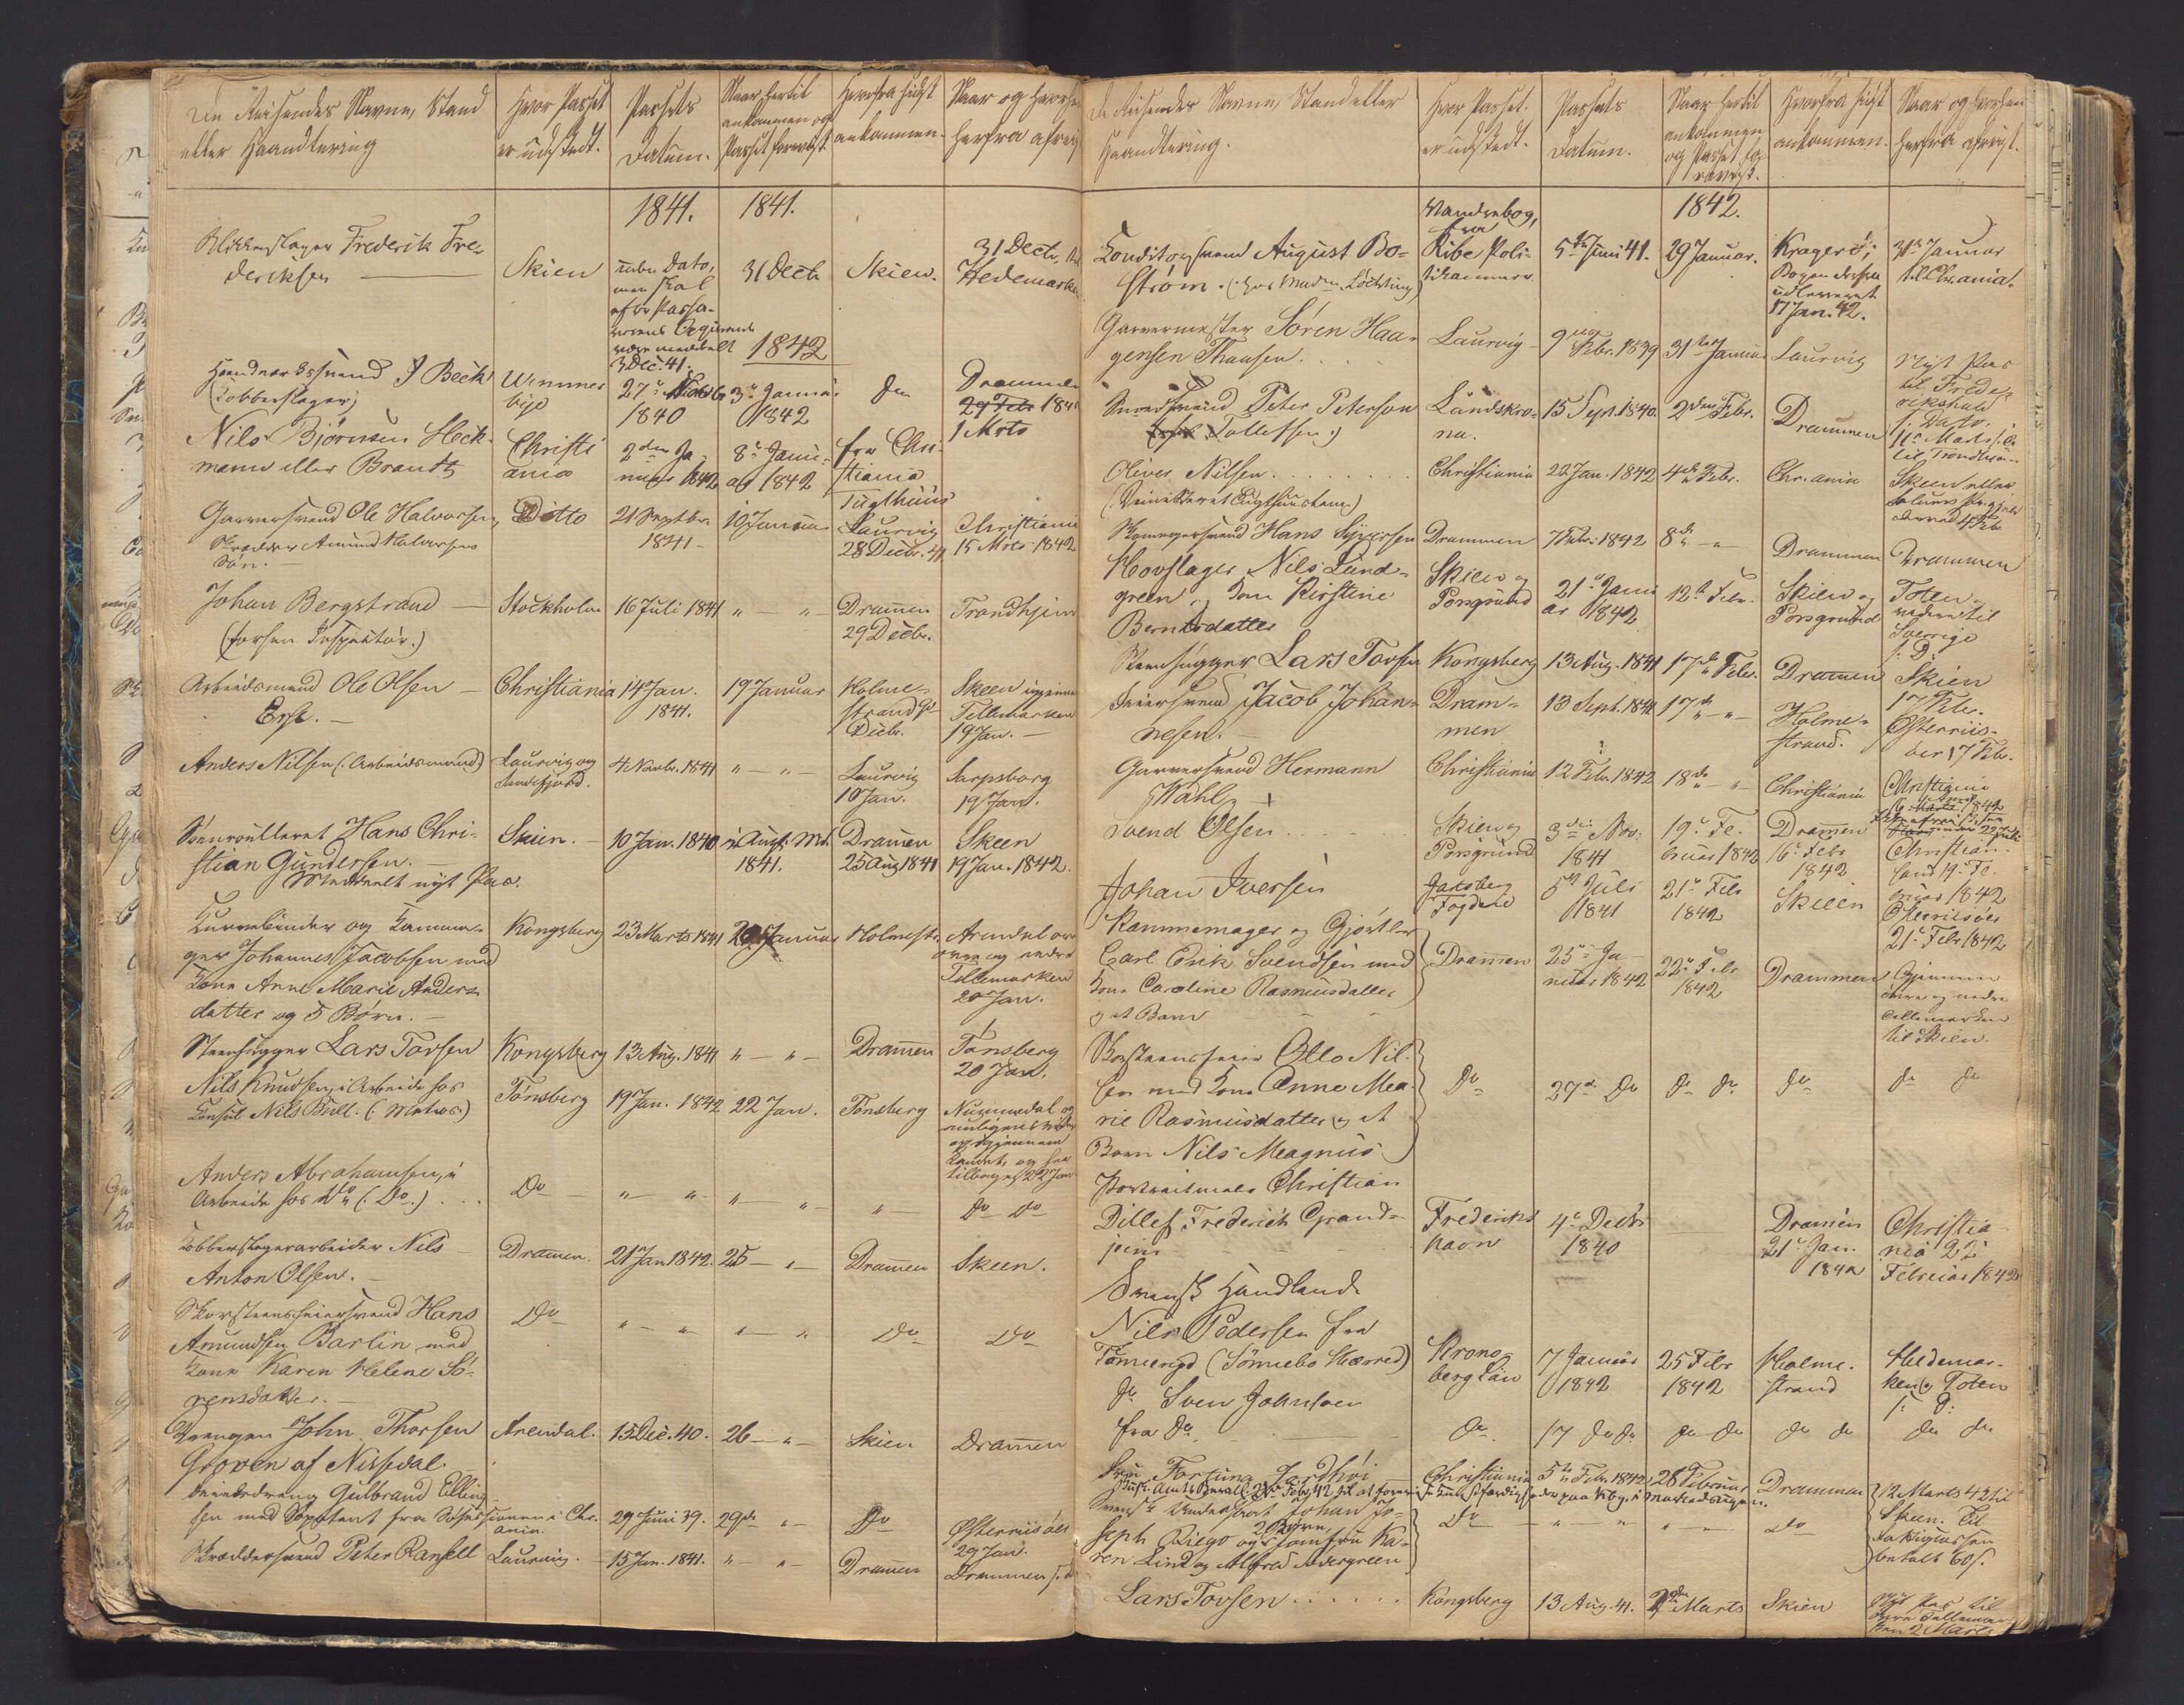 De Reisendes Navne, Stand
eller Haandtering
Hvor Passet
er udstedt.
Passets
Datum.
Naar hertil
ankommen og
Passet forevist
Hvorfra sidst
ankommen.
Naar og hvorhen
herfra afreist
1841. 1841.
Blikkenslager Frederik Fre-
deriksen
Skien
uden Dato,
men skal
31 Decb
Skien.
31 Decbr.
Hedemarken
3 Dec. 41.
1842
Haandværkssvend J Beck
(Kobberslager)
Wimmer
bye
27
1840
3 Januar
1842
do
Drammen
29 Febr 184
1 Mrts
Nils Björnsen Heck-
mann eller Brandt
Christi
ania
2den Ja-
nuar 1842
8 Janu-
ar 1842
fra Chri-
stiania
Tugthuus
Garversvend Ole Halvorsen
Skrædder Amund Halvorsens
Søn.
Ditto
21 Septbr.
1841
19 Januar
Laurvig
28 Decbr. 41
Christiania
15 Mrts 1842
Johan Bergstrand
(forhen Inspektör.)
Stockholm
16 Juli 1841
" "
Dramen
29 Decb.
Trondhjem
Arbeidsmand Ole Olsen
Erse.
Christiania
14 Jan.
1841.
19 Januar
Holme-
strand
Decbr.
Skeen igjennem
Tellemarken
19 Jan.
Anders Nilsen (: Arbeidsmand)
Laurvig og
Sandefjord.
4 Novbr. 1841
" — " —
Laurvig
10 Jan.
Sarpsborg
19 Jan.
Hans Chri-
stian Gundersen.
Meddeelt nyt Pas.
Skien.
10 Jan. 1840
i Aug. Md.
1841.
Dramen
25 Aug 1841
Skeen
19 Jan. 1842.
Kurvebinder og Kamma-
ger Johannes Jacobsen med
Kone Anne Marie Anders-
datter og 5 Börn.
Kongsberg
23 Marts 1841
20 Januar
Holmestr.
Arendal over
övre og nedre
Tellemarken
20 Jan.
Steenhugger Lars Tovsen
Kongsberg
13 Aug. 1841
" — " —
Dramen
Tönsberg
20 Jan.
Nils Knudsen, i Arbeide hos
Consul Nils Bull. (: Matros:)
Tönsberg
19 Jan. 1842
22 Jan.
Tönsberg
Nummedal og
Landet, og her
tilbage 22 Jan
Anders Abrahamsen, i
Arbeide hos do (: Do.)
Do
" "
" "
"
Do Do
Kobberslagerarbeider Nils
Anton Olsen.
Dramen.
21 Jan 1842.
25 — " —
Dramen
Skeen.
Skorsteensfeiersvend Hans
Amundsen Barlin med
Kone Karen Helene Sö-
rensdatter.
Do
" "
" "
Do
Do
Drengen John Thorsen
Groven af Nissedal.
Arendal.
15 Dec. 40.
26 — " —
Skien
Dramen
Gulbrand Elling-
sen med Sexpetent fra i Chr.
ania.
29 Juni 39.
29de " —
Do
Österriisöer
29 Jan.
Skræddersvend Peter Ransell
Laurvig.
15 Jan. 1841.
" "
Dramen
Drammen
De Reisendes Navne, Stand eller
Haandtering.
Hvor Passet.
er udstedt.
Passets
Datum.
Naar hertil
ankommen
og Passet fo-
revist.
Hvorfra sidst
ankommen.
Naar og hvorhen
herfra afreist.
1842.
Konditorsvend August Bo-
ström. (: hos Madm.
Vandrebog,
fra
Ribe Poli-
tikammer
5te Juni 41.
29 Januar.
Kragerö;
Bogen
udleveret
17 Jan. 42.
31te Januar
til Chr.ania.
Garvermester Sören Haa-
gensen Thansen.
Laurvig
9 Febr. 1839
31te Januar
Laurvig
Nyt Pas
til Frede-
rikshald
Smedsvend Peter Peterson
Tollefsen:)
Landskro-
na.
15 Sept. 1840.
2den Febr.
Drammen
11 Marts
til Trondhiem
Oliver Nilsen
Christiania
22 Jan. 1842
4de Febr.
Chr. ania
Skeen eller
Hans Syversen
Drammen
7 Febr. 1842
8de " —
Drammen
Drammen
Hovslager Nils Lund-
green, og Kone Kirstine
Berntsdatter
Skien og
Porsgrund
21 Janu
ar 1842
12te Febr.
Skien og
Porsgrund
Toten
videre til
Sverrige
Steenhugger Lars Tovsen
Kongsberg
13 Aug. 1841
17de Febr.
Dramen
Skien
17 Febr.
Feiersvend Jacob Johan-
nesen.
Dram-
men
13 Sept. 1841
17de " —
Holme-
strand.
Österriis-
öer 17 Febr.
Garversvend Hermann
Wahl
Christiania
12 Febr. 1842
18de " —
Christiania
Christiania
Svend Olsen
Skien og
Porsgrund
3die Nov.
1841
19 Fe-
bruar 1842
Dramen
16 Febr
1842
Christian-
sand 19 Fe-
bruar 1842
Johan Iversen
Jarlsberg
Fogderie
5 Juli
1841
21 Febr
1842
Skeen
Österriisöer
21 Febr 1842
Kammemager og Gjörtler
Carl Erik Svendsen med
Kone Caroline Rasmusdatter
og et Barn
Dramen
25 Ja-
nuar 1842
22 Febr
1842
Drammen
Gjennem
övre og nedre
Tellemarken
til Skien.
Skorsteensfeier Otto Nil-
sen med Kone Anne Ma-
rie Rasmusdatter og et
Barn Nils Magnus
Do
27 Do
do do
do
do do
Portraitmaler Christian
Ditlef Frederich Grand-
jean
Frederiks
havn
4 Decbr
1840
Dramen
21 Jan.
1842
Christia-
nia 22
Februar 1842
Svensk Handlende
Nils Pedersen fra
Tömeryd (Sönnebo Hærred)
Krono-
berg Län
7 Januar
1842
25 Febr
1842
Holme-
strand
Hedemar-
ken og Toten
do Sven Johnsen
fra do
do
17 do do
do do
do do
do do
Fortuna
Christiania
5te Febr. 1842.
28 Februar
Drammen
12 Marts 42 til
Skeen.
Johan Jo-
seph Riego og Jomfru Ka-
ren Lind og Alfred Andergreen
2 Börn,
Do
" "
" "
do
betalt 60 s.
Lars Tovsen
Kongsberg
13 Aug. 41.
2den Marts
Skien
Nyt Pas til
övre Tellemar-
ken 2 Marts